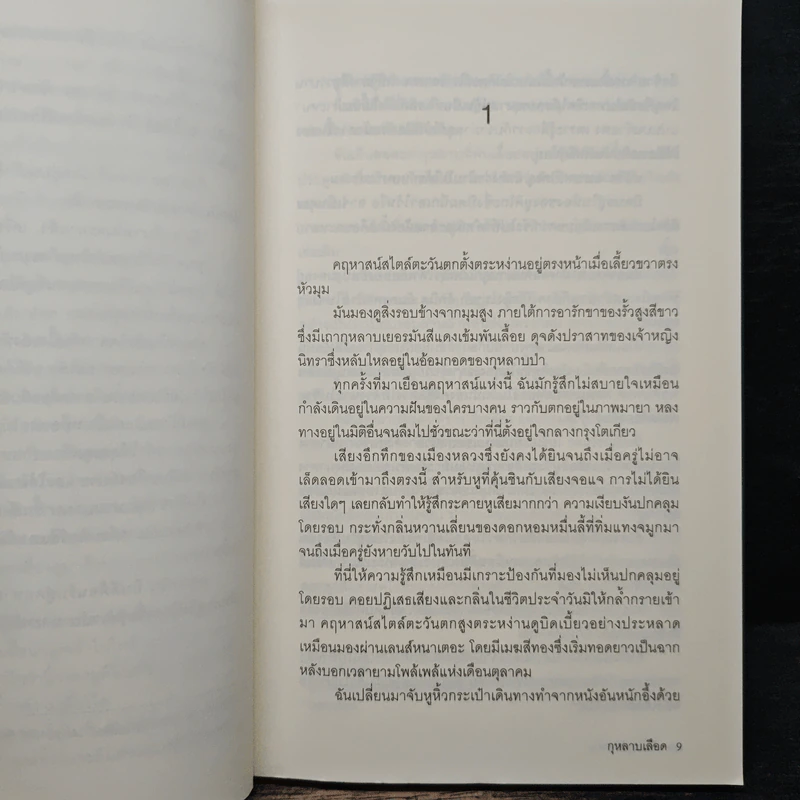 1
คฤหาสน์สไตล์ตะวันตกตั้งตระหง่านอยู่ตรงหน้าเมื่อเลี้ยวขวาตรง
หัวมุม
มันมองดูสิ่งรอบข้างจากมุมสูง ภายใต้การอารักขาของรั้วสูงสีขาว
ซึ่งมีเถากุหลาบเยอรมันสีแดงเข้มพันเลื้อย ดุจดังปราสาทของเจ้าหญิง
นิทราซึ่งหลับใหลอยู่ในอ้อมกอดของกุหลาบป่า
ทุกครั้งที่มาเยือนคฤหาสน์แห่งนี้ ฉันมักรู้สึกไม่สบายใจเหมือน
กำลังเดินอยู่ในความฝันของใครบางคน ราวกับตกอยู่ในภาพมายา หลง
ทางอยู่ในมิติอื่นจนลืมไปชั่วขณะว่าที่นี่ตั้งอยู่ใจกลางกรุงโตเกียว
เสียงอึกทึกของเมืองหลวงซึ่งยังคงได้ยินจนถึงเมื่อครู่ไม่อาจ
เล็ดลอดเข้ามาถึงตรงนี้ สำหรับหูที่คุ้นชินกับเสียงจอแจ การไม่ได้ยิน
เสียงใดๆ เลยกลับทำให้รู้สึกระคายหูเสียมากกว่า ความเงียบงันปกคลุม
โดยรอบ กระทั่งกลิ่นหวานเลี่ยนของดอกหอมหมื่นลี้ที่ทิ่มแทงจมูกมา
จนถึงเมื่อครู่ยังหายวับไปในทันที
ที่นี่ให้ความรู้สึกเหมือนมีเกราะป้องกันที่มองไม่เห็นปกคลุมอยู่
โดยรอบ คอยปฏิเสธเสียงและกลิ่นในชีวิตประจำวันมิให้กล้ำกรายเข้า
มา คฤหาสน์สไตล์ตะวันตกสูงตระหง่านดูบิดเบี้ยวอย่างประหลาด
เหมือนมองผ่านเลนส์หนาเตอะ โดยมีเมฆสีทองซึ่งเริ่มทอดยาวเป็นฉาก
หลังบอกเวลายามโพล้เพล้แห่งเดือนตุลาคม
ฉันเปลี่ยนมาจับหูหิ้วกระเป๋าเดินทางทำจากหนังอันหนักอึ้งด้วย
กุหลาบเลือด 9